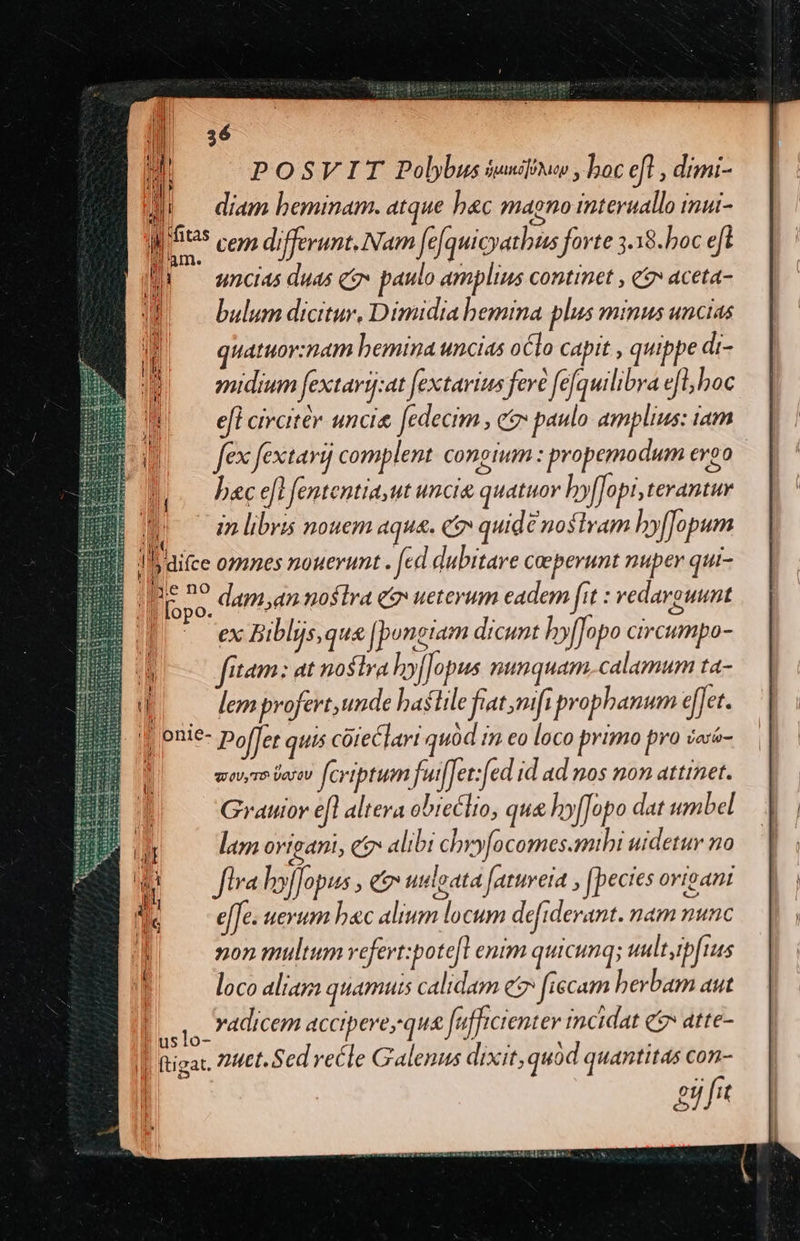 36
POSVIT Polybus ἡμικοτύλιον, hoc est, dimi-
diam heminam. atque hæc magno interuallo inui-
sitas cem differunt. Nam sesquicyathus forte 3.18. hoc est
am. uncias duas & paulo amplius continet, & aceta-
bulum dicitur. Dimidia hemina plus minus uncias
quatuor: nam hemina uncias octo capit, quippe di-
midium sextarij: at sextarius ferè sesquilibra est, hoc
est circitèr unciæ sedecim, & paulo amplius: iam
sex sextarij complent congium: propemodum ergo
hæc est sententia, ut unciæ quatuor hyssopi, terantur
in libris nouem aquæ. & quidē nostram hyssopum
disce omnes nouerunt. sed dubitare cœperunt nuper qui-
e no dam, an nostra & ueterum eadem sit: redarguunt
sopo. ex Biblijs, quæ spongiam dicunt hyssopo circumpo-
sitam: at nostra hyssopus nunquam calamum ta-
lem profert, unde hastile fiat, nisi prophanum esset.
onie- Posset quis cōiectari quòd in eo loco primo pro
scriptum fuisset: sed id ad nos non attinet.
Grauior est altera obiectio, quæ hyssopo dat umbel
lam origani, & alibi chrysocomes. mihi uidetur no
stra hyssopus, & uulgata satureia, species origani
esse. uerum hæc alium locum desiderant. nam nunc
non multum refert: potest enim quicunq; uult, ipsius
loco aliam quamuis calidam & siccam herbam aut
us lo- radicem accipere, quæ sufficienter incidat & atte-
stigat. nuet. Sed recte Galenus dixit, quòd quantitas con-
gij sit